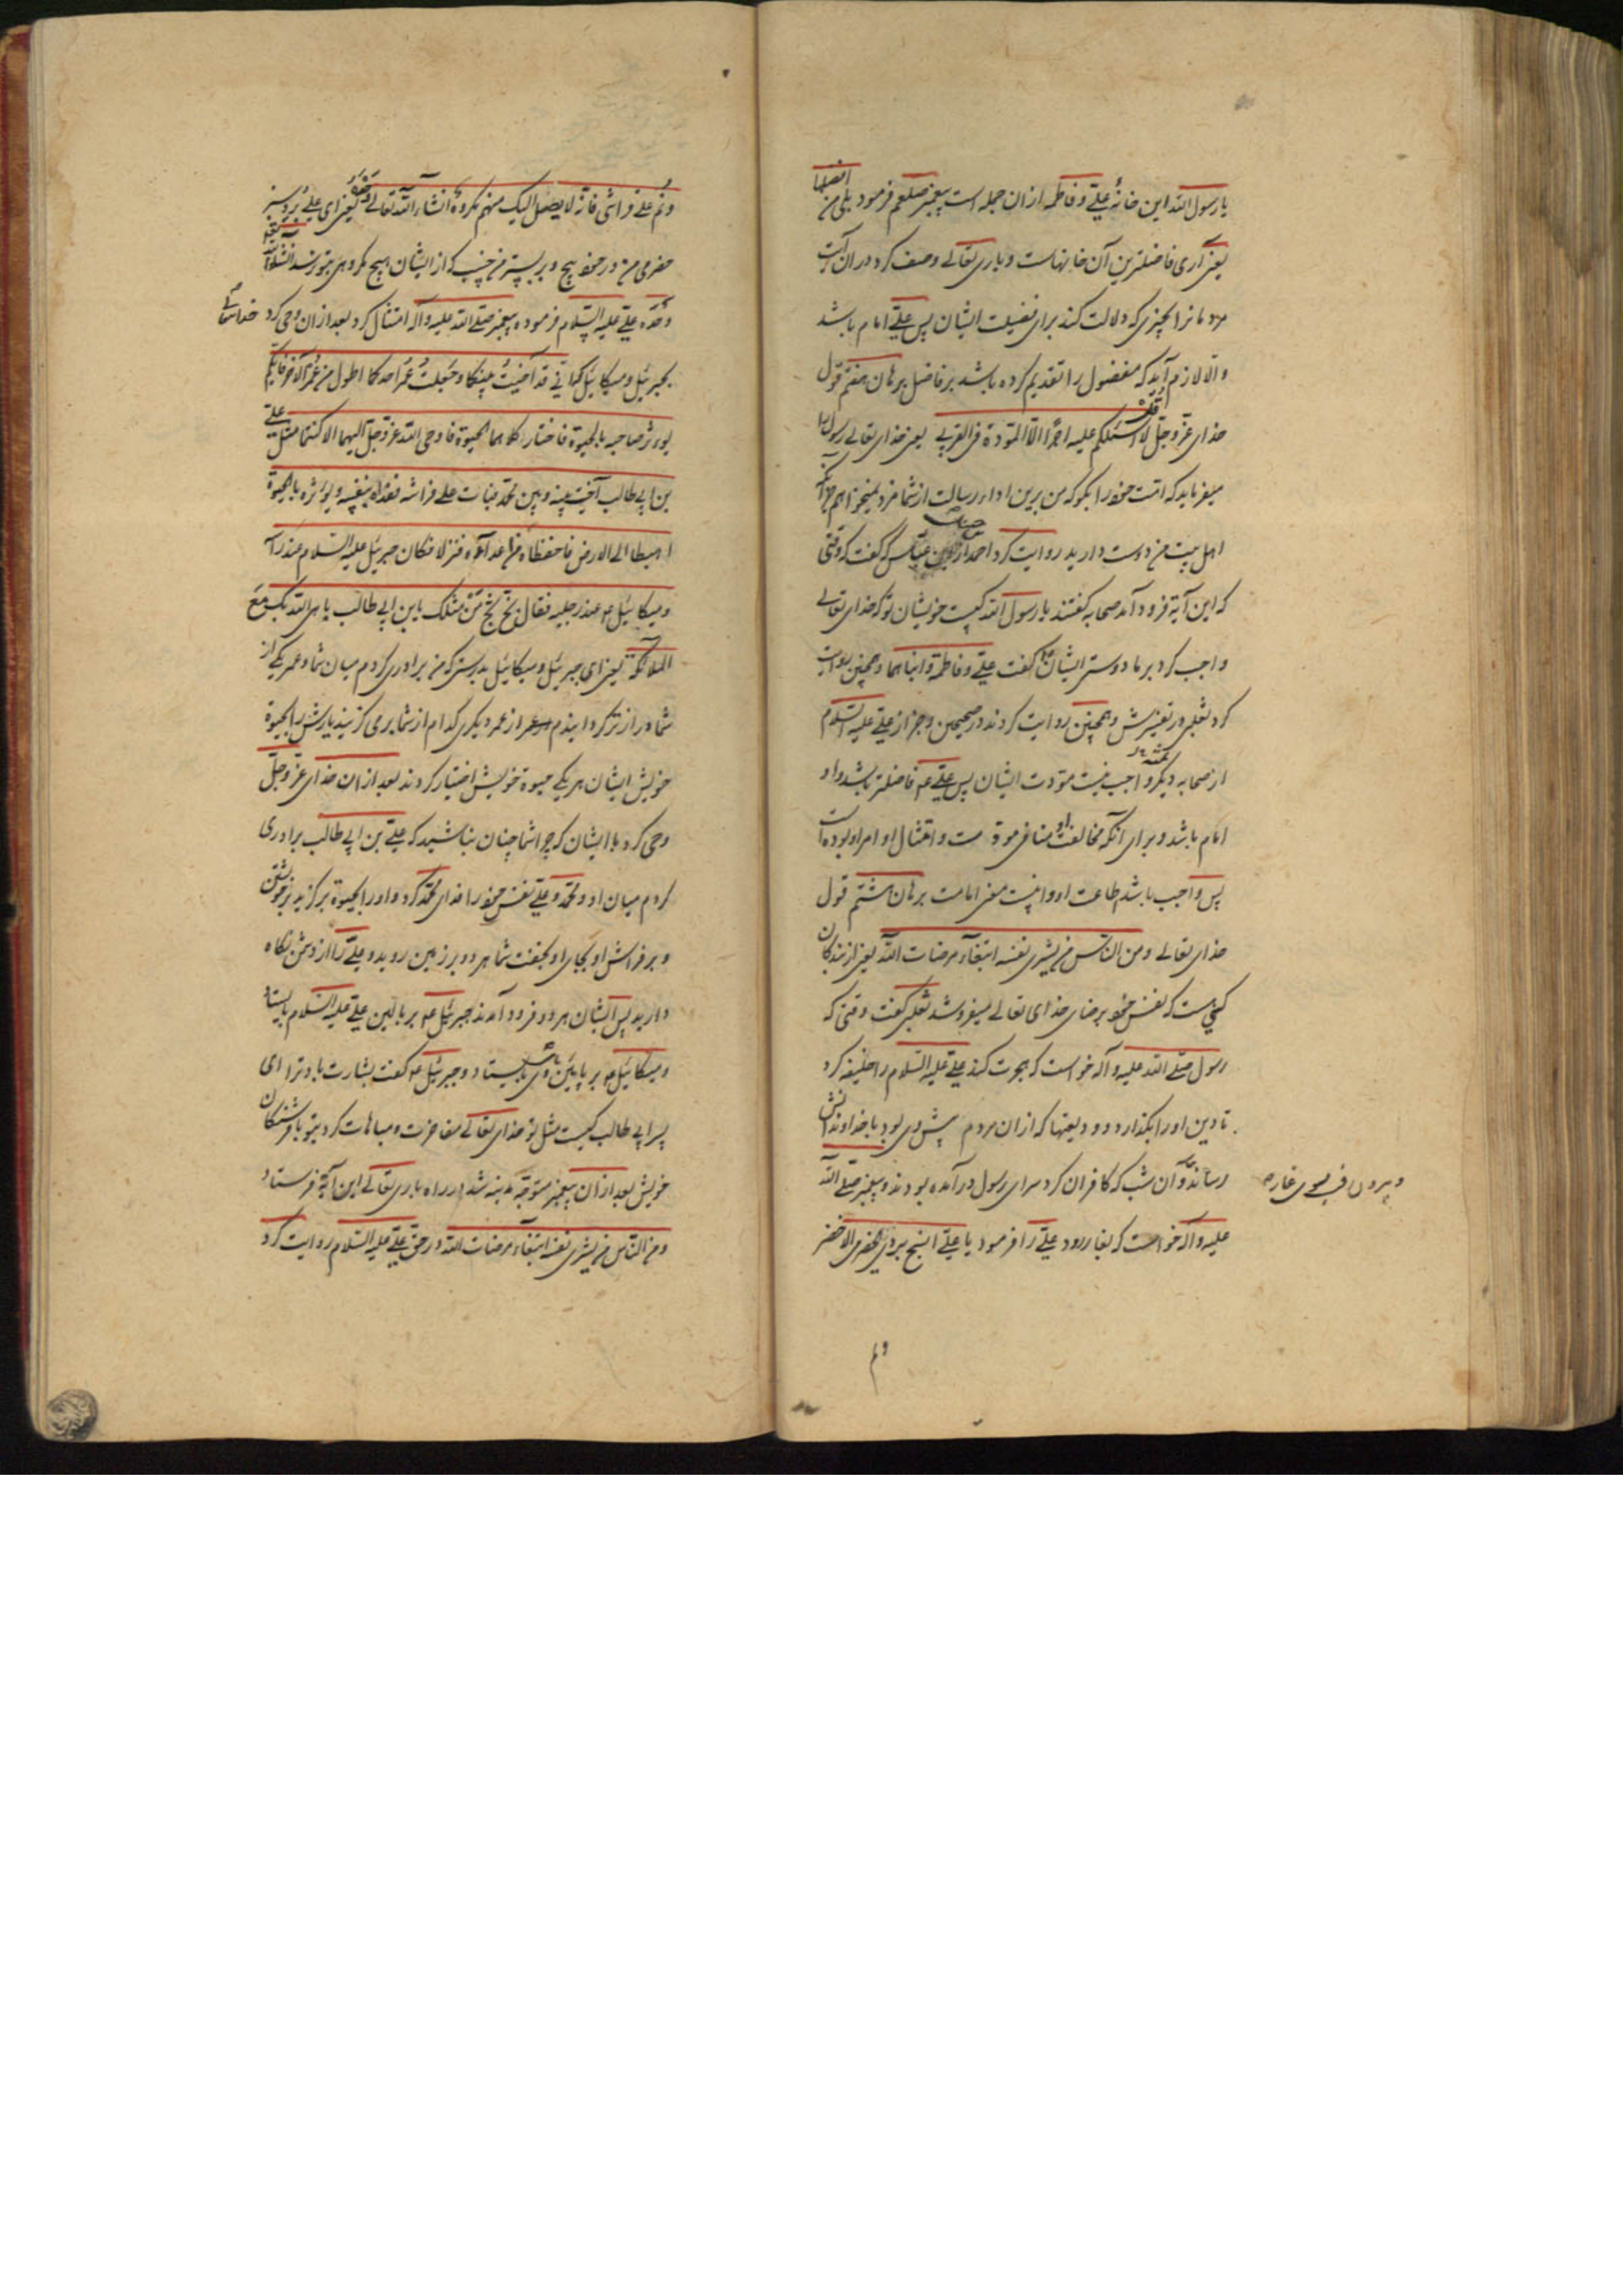 یا رسول الله این خانهٔ علی و فاطمه ازان جمله است پیغمبر صلعم فرمود بلی من افضلها
یعنی آری فاضلترین آن خانهاست و باری تعالی وصف کرد دران آیت
مردمانرا بچیزی که دلالت کند برای فضیلت ایشان پس علی امام باشد
والا لازم آید که مفضول را تقدیم کرده باشد بر فاضل برهان هفتم قول
خدای عز وجل قل لا اسئلکم علیه اجرا الا المودة فی القربی یعنی خدای تعالی رسول را
میفرماید که امت خود را بگو که من برین اداء رسالت از شما مزد نمیخواهم جز آنکه
اهل بیت من دوست دارید روایت کرد احمد از ابن عباس که گفت که وقتی
که این آیة فرود آمد صحابه گفتند یا رسول الله کیست خویشان تو که خدای تعالی
واجب کرد بر ما دوستی ایشان گفت علی و فاطمة و ابناهما و همچنین روایت
کرد ثعلبی در تفسیرش و همچنین روایت کردند در صحیحین و جز از علی علیه السلام
از صحابه دیگر واجب نیست مودت ایشان پس علی عم فاضلتر باشد و او
امام باشد و برای آنکه مخالفت او منافی مودة است و امتثال او امر او بوده است
پس واجب باشد طاعت او و اینست معنی امامت برهان هشتم قول
خدای تعالی ومن الناس من یشری نفسه ابتغاء مرضات الله یعنی از بندگان
کسی ست که نفس خود برضای خدای تعالی میفروشد ثعلبی گفت وقتی که
رسول صلی الله علیه و آله خواست که هجرت کند علی علیه السلام را خلیفه کرد
تا دین او را بگذارد و ودیعتها که ازان مردم پیش وی بود با خداوندانش
رساند و آن شب که کافران گرد سرای رسول در آمده بودند و پیغمبر صلی الله
علیه و آله خواست که بغار رود علی را فرمود یا علی اتشح ببردی الحضرمی الاخضر
ونم
ونم علی فراشی فانه لا یصل الیک منهم مکروه انشاء الله تعالی یعنی ای علی برد سبز
حضرمی من در خود پیچ و بر بستر من خسپ که از ایشان هیچ مکروهی بتو نرسد انشاء الله
وحده علی علیه السلام فرموده پیغمبر صلی الله علیه و آله امتثال کرد بعد ازان وحی کرد خدای تعالی
بجبرئیل و میکائیل که انی قد آخیت بینکما و جعلت عمر احدکما اطول من عمر الآخر فایکما
یوثر صاحبه بالحیوة فاختار کلاهما الحیوة فاوحی الله عز وجل الیهما الا کنتما مثل علی
بن ابی طالب آخیت بینه و بین محمد فبات علی فراشه یفدیه بنفسه و یوثره بالحیوة
اهبطا الی الارض فاحفظاه من اعدآئه فنزلا فکان جبرئیل علیه السلام عند راسه
و میکائیل عم عند رجلیه فقال بخ بخ من مثلک یا بن ابی طالب یباهی الله بک مع
الملائکة یعنی ای جبرئیل و میکائیل بدرستی که من برادری کردم میان شما و عمر یکی از
شما دراز تر گردانیدم از عمر دیگری کدام از شما برمی گزیند یارش را بحیوة
خویش ایشان هر یکی حیوة خویش اختیار کردند بعد ازان خدای عز وجل
وحی کرد با ایشان که چرا شما چنان نباشید که علی بن ابی طالب برادری
کردم میان او و محمد و علی نفس خود را فدای محمد کرد و او را بحیوة برگزید بر خویشتن
و بر فراش او بجای او بخفت شما هر دو بر زمین روید و علی را از دشمن نگاه
دارید پس ایشان هر دو فرود آمدند جبرئیل عم بر بالین علی علیه السلام بایستاد
و میکائیل عم بر پایین وی بایستاد و جبرئیل عم گفت بشارت باد ترا ای
پسر ابی طالب کیست مثل تو خدای تعالی مفاخرت و مباهات کرد بتو با فرشتگان
خویش بعد ازان پیغمبر متوجه مدینه شد در راه باری تعالی این آیة فرستاد
ومن الناس من یشری نفسه ابتغاء مرضات الله در حق علی علیه السلام روایت کرد